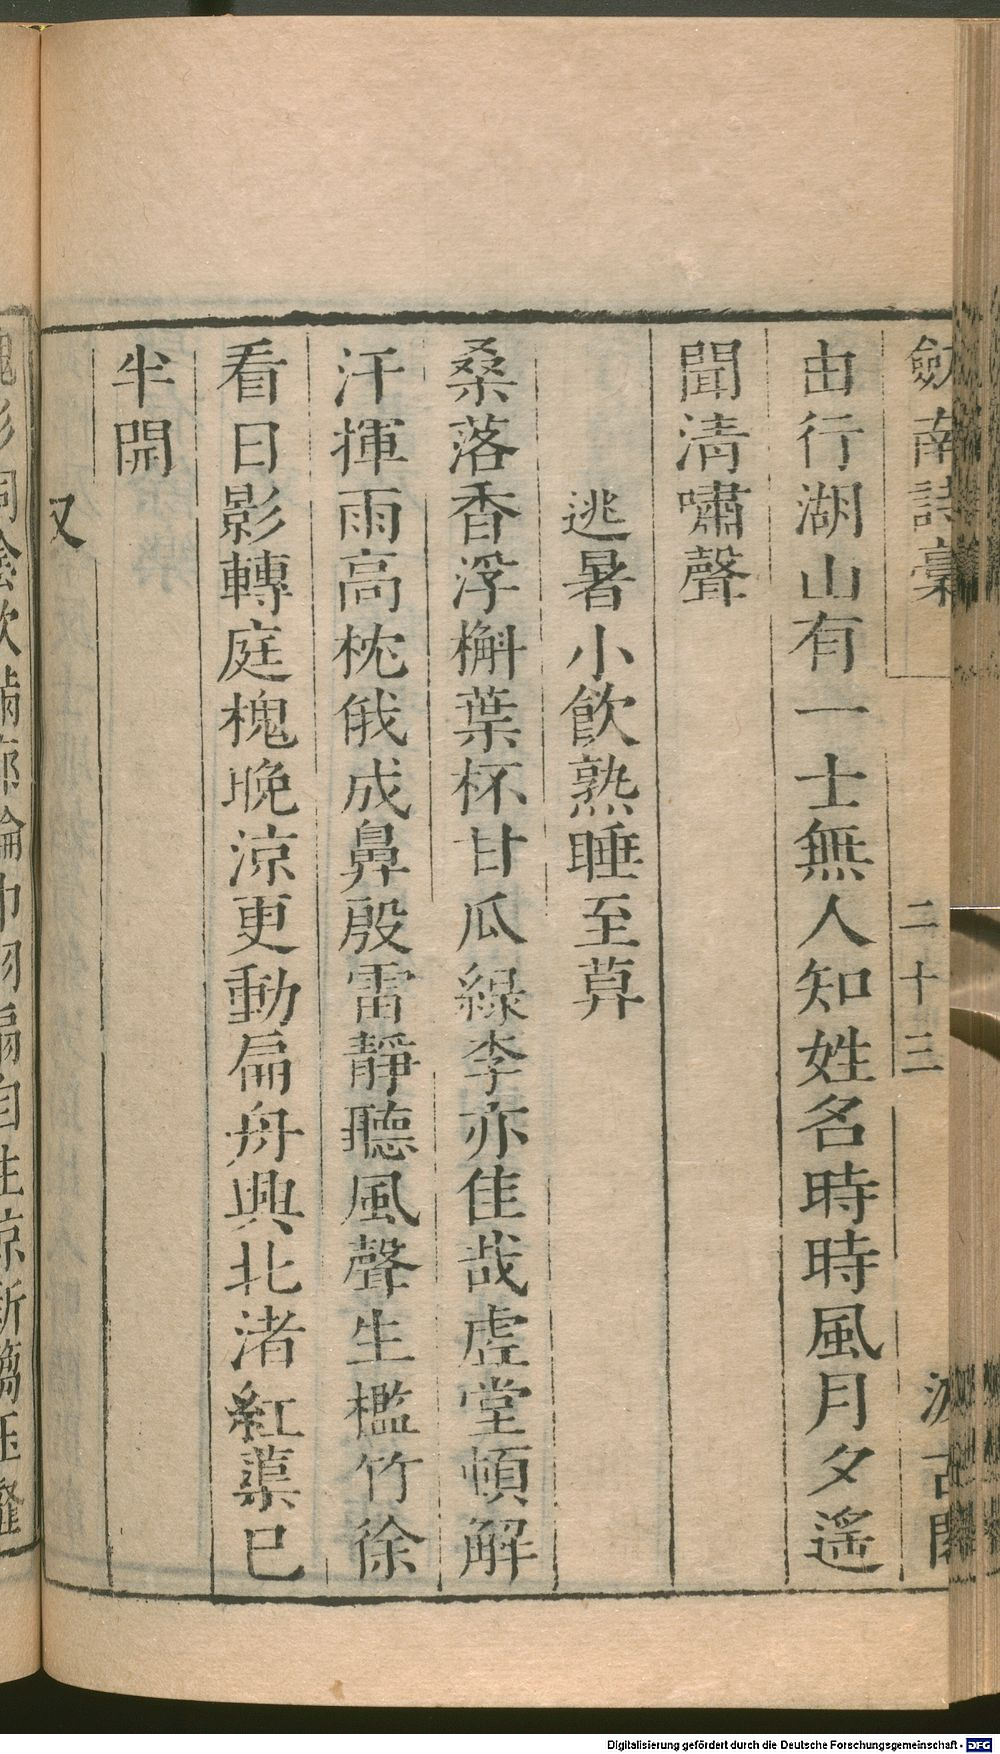 劔南詩稾 二十三 汲古閣
由行湖山有一士無人知姓名時時風月夕遥
聞清嘯聲
逃暑小飲熟睡至暮
桑落香浮槲葉杯甘瓜綠李亦佳哉虛堂頓解
汗揮雨高枕俄成鼻殷雷靜聽風聲生檻竹徐
看日影轉庭槐晚涼更動扁舟興北渚紅蕖已
半開
又
Digitalisierung gefördert durch die Deutsche Forschungsgemeinschaft - DFG